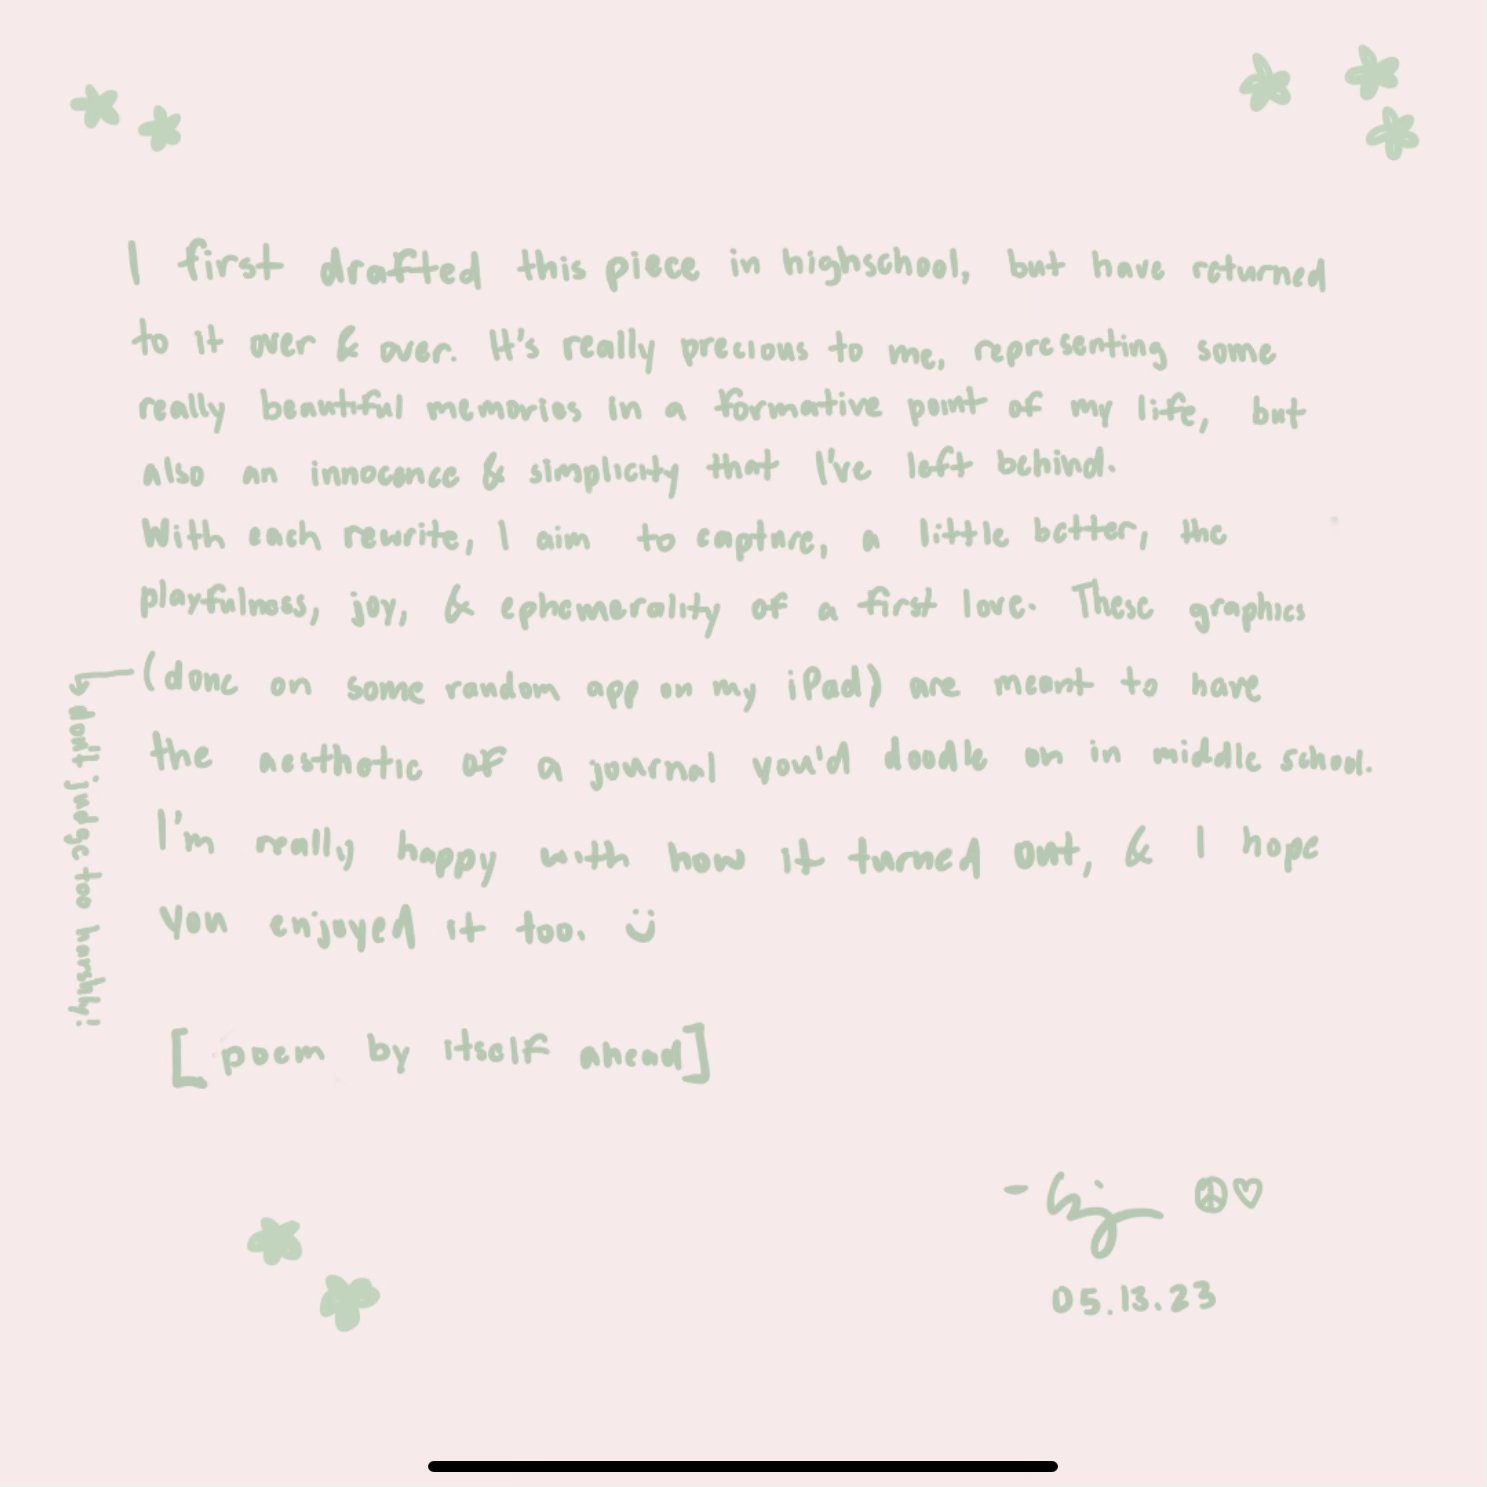 I first drafted this piece in highschool, but have returned
to it over & over. It's really precious to me, representing some
really beautiful memories in a formative point of my life, but
also an innocence & simplicity that I've left behind.
With each rewrite, I aim to capture, a little better, the
playfulness, joy, & ephemerality of a first love. These graphics
(done on some random app on my iPad) are meant to have
the aesthetic of a journal you'd doodle on in middle school.
I'm really happy with how it turned out, & I hope
you enjoyed it too. :)
don't judge too harshly!
[poem by itself ahead]
05.13.23